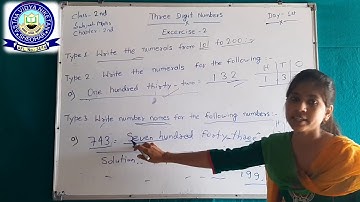 Class- 2nd
Subject- Maths
Chapter- 2nd
Three Digit Numbers
Day- 1st
Excercise - 2
Type 1. Write the numerals from 101 to 200.
Type 2. Write the numerals for the following :-
a) One hundred thirty - two = 132
H T O
1 3
Type 3 Write number names for the following numbers:-
a) 743 = Seven hundred forty-three
Solution
199,